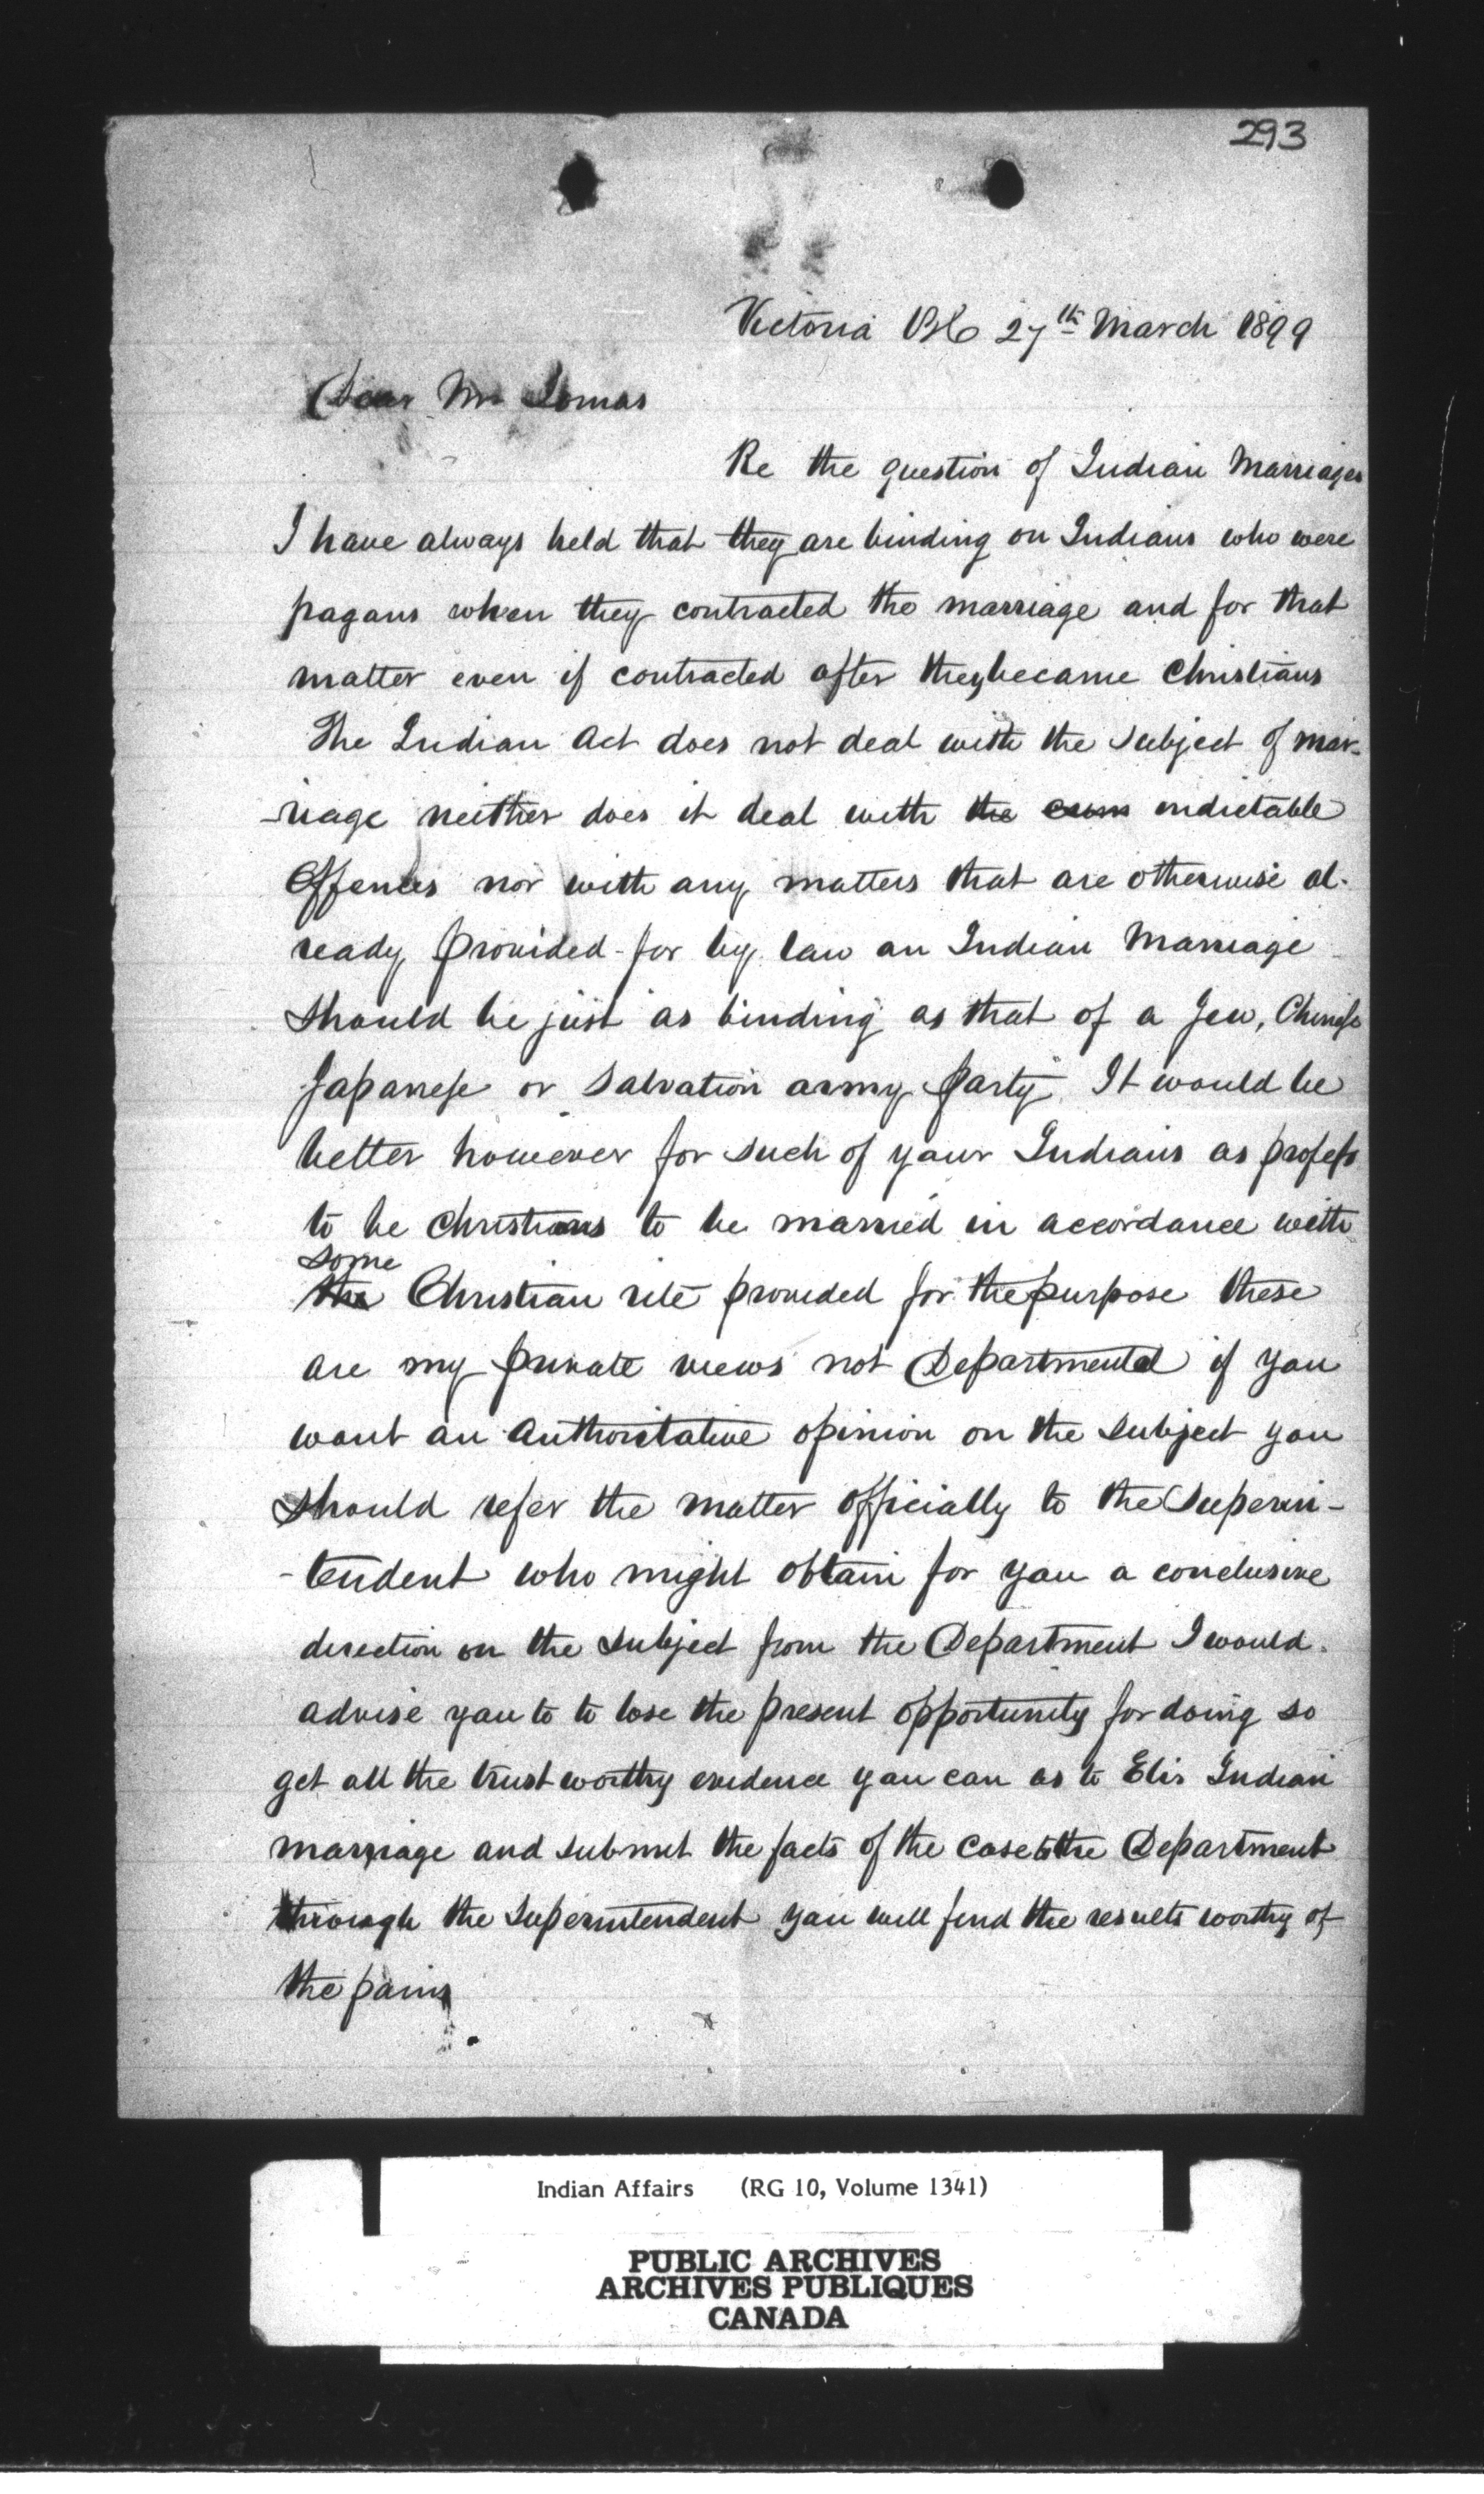 293
Victoria BC 27th March 1899
Dear Mr Lomas
Re the question of Indian Marriages
I have always held that they are binding on Indians who were
pagans when they contracted the marriage and for that
matter even if contracted after they became Christians
The Indian Act does not deal with the subject of mar-
-riage neither does it deal with the indictable
Offences nor with any matters that are otherwise al-
ready provided for by law an Indian Marriage
should be just as binding as that of a Jew, Chinese
Japanese or Salvation army party. It would be
better however for such of your Indians as profess
to be Christians to be married in accordance with
some
the Christian rite provided for the purpose these
are my private views not Departmental if you
want an Authoritative opinion on the subject you
should refer the matter officially to the Superin-
-tendent who might obtain for you a conclusive
direction on the subject from the Department I would
advise you to to lose the present opportunity for doing so
get all the trustworthy evidence you can as to Elis Indian
marriage and submit the facts of the case to the Department
through the Superintendent you will find the results worthy of
the pains
Indian Affairs (RG 10, Volume 1341)
PUBLIC ARCHIVES
ARCHIVES PUBLIQUES
CANADA